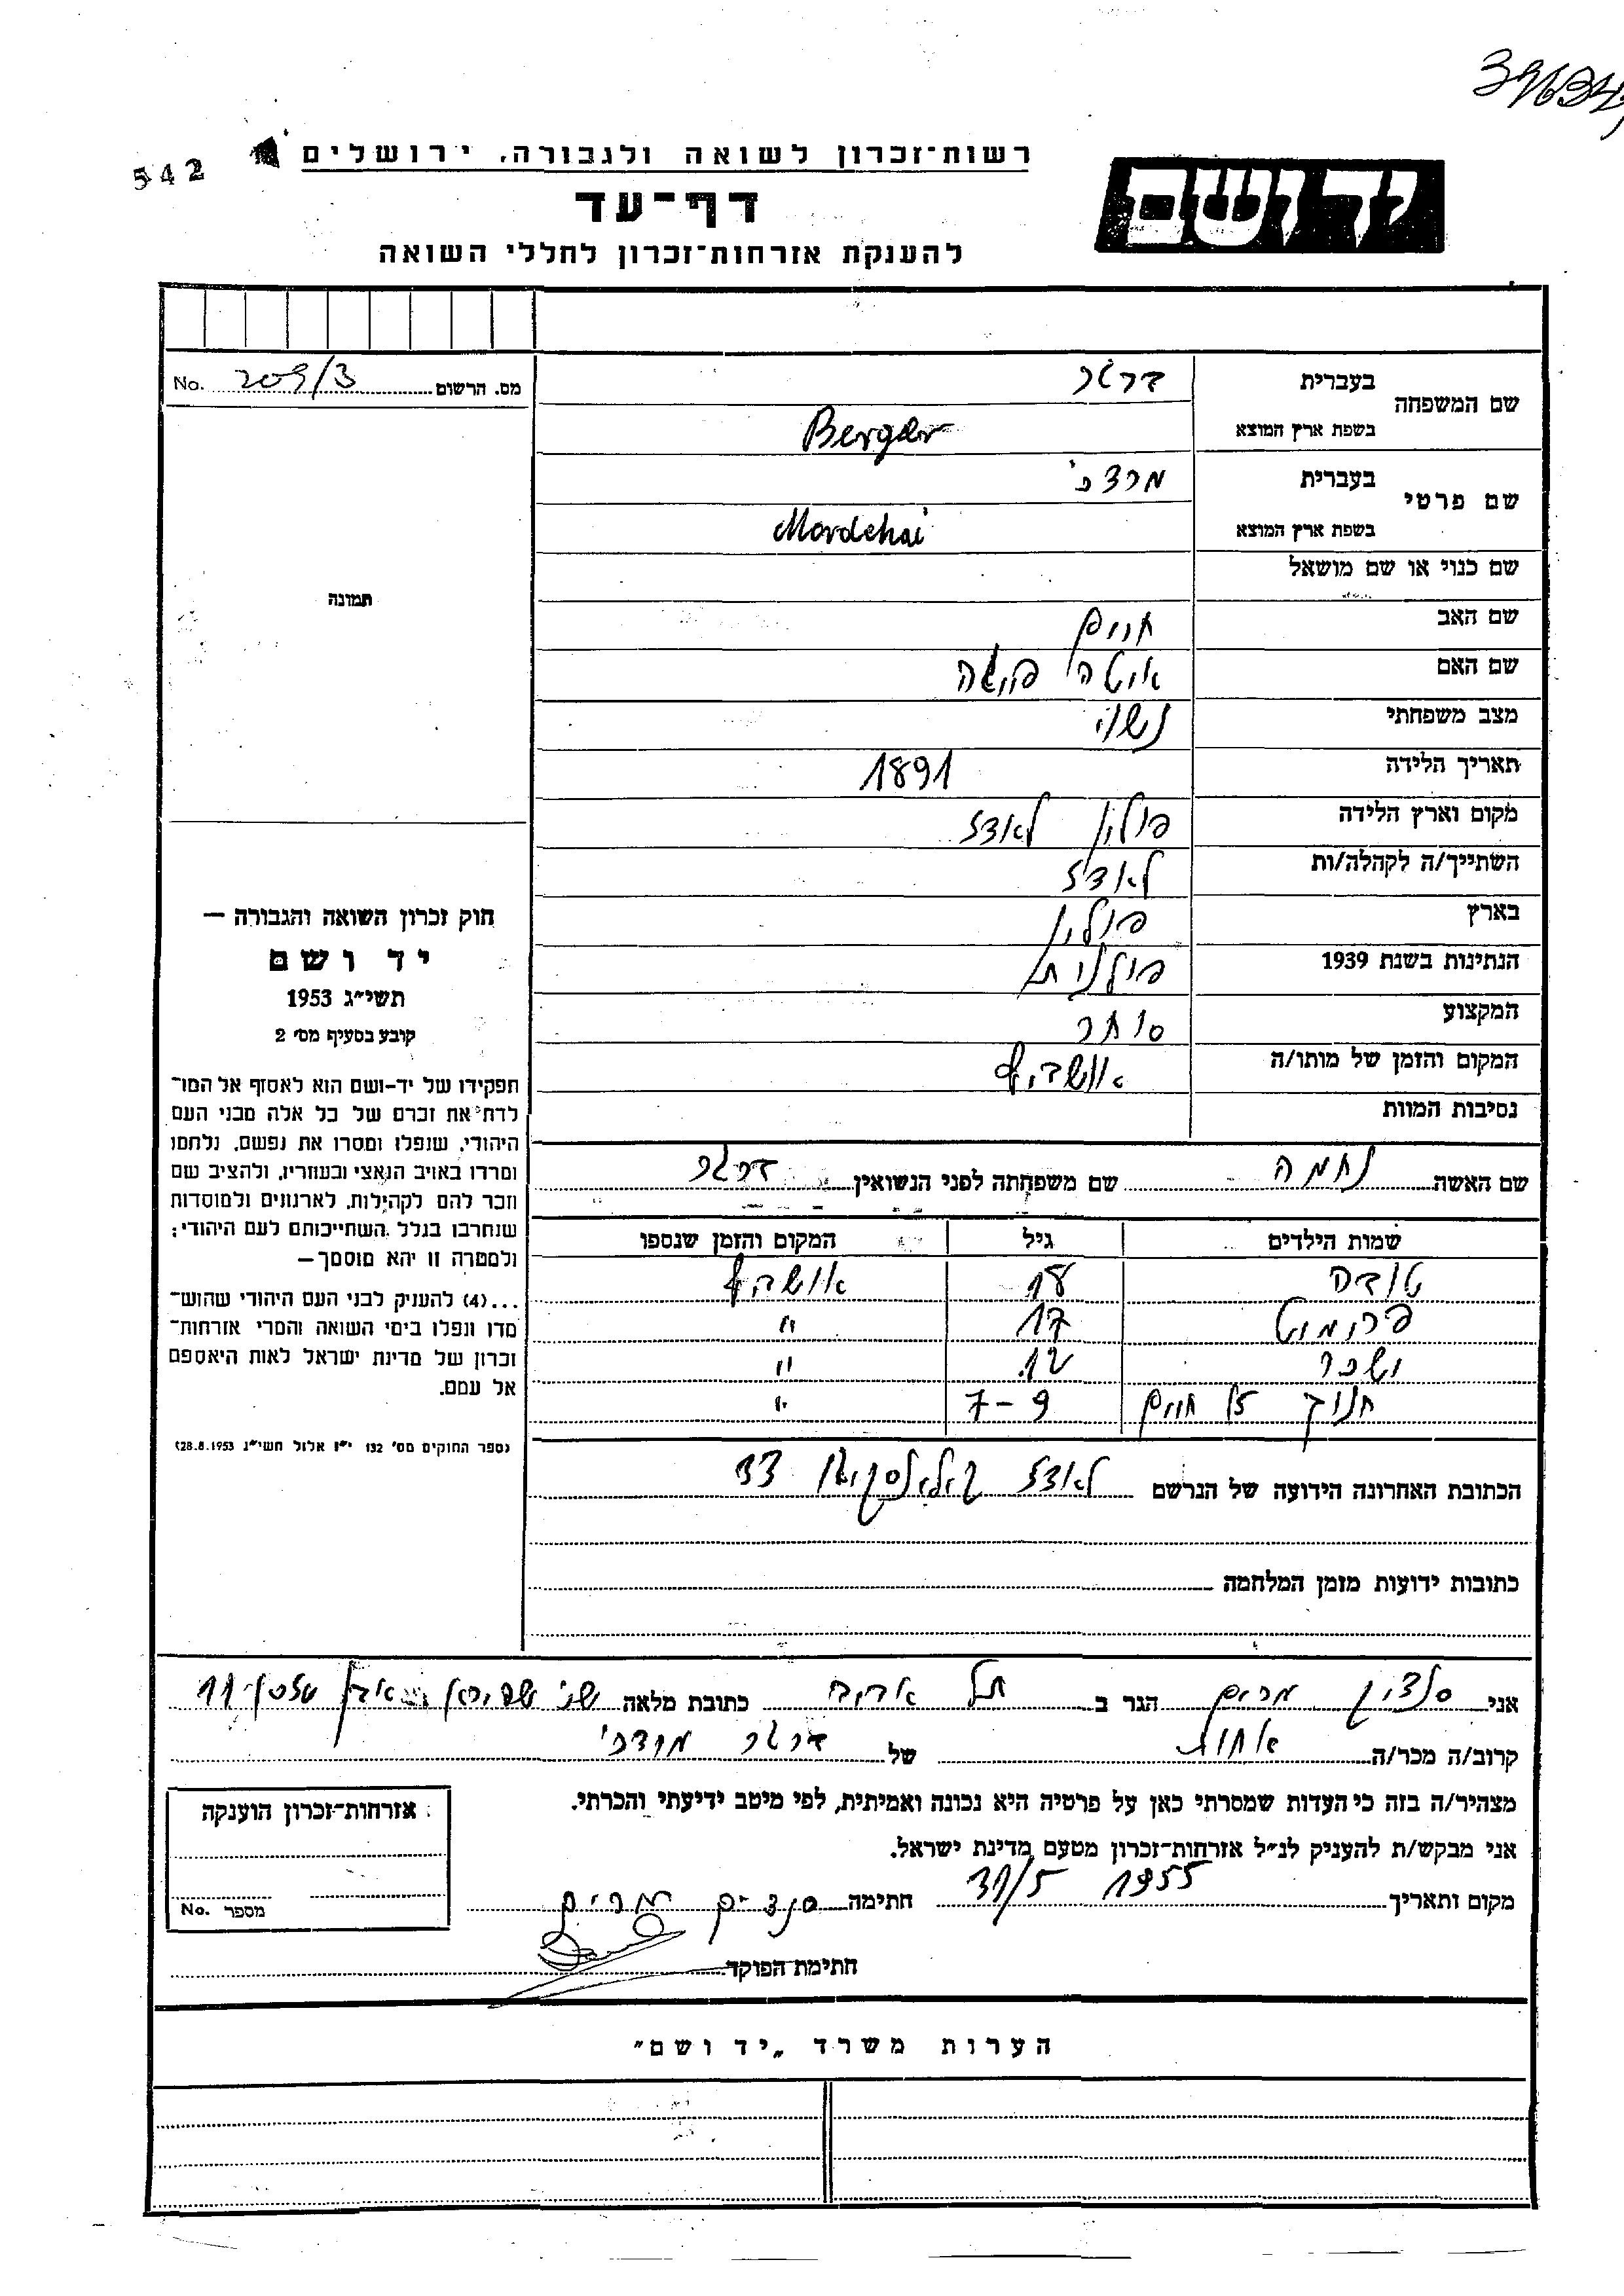 542
רשות־זכרון לשואה ולגבורה, ירושלים
יד ושם
דף־עד
להענקת אזרחות־זכרון לחללי השואה
מס. הרשום 209/3 No.
שם המשפחה
בעברית ברגר
בשפת ארץ המוצא Berger
שם פרטי
בעברית מרדכי
בשפת ארץ המוצא Mordehai
שם כנוי או שם מושאל
שם האב חיים
שם האם איטה פייגה
מצב משפחתי נשוי
תאריך הלידה 1891
מקום וארץ הלידה פולין לאדז
השתייך/ה לקהלה/ות לאדז
בארץ פולין
הנתינות בשנת 1939 פולנית
המקצוע סוחר
המקום והזמן של מותו/ה אושביץ
נסיבות המוות
שם האשה נחמה שם משפחתה לפני הנשואין ברגר
שמות הילדים גיל המקום והזמן שנספו
טובה 18 אושביץ
פרומט 17 "
ישכר 12 "
חנוך חיים 7-9 "
הכתובת האחרונה הידועה של הנרשם לאדז 33
כתובות ידועות מזמן המלחמה
תמונה
חוק זכרון השואה והגבורה —
יד ושם
תשי"ג 1953
קובע בסעיף מס' 2
תפקידו של יד-ושם הוא לאסוף אל המו־
לדת את זכרם של כל אלה מבני העם
היהודי, שנפלו ומסרו את נפשם, נלחמו
ומרדו באויב הנאצי ובעוזריו, ולהציב שם
וזכר להם לקהילות, לארגונים ולמוסדות
שנחרבו בגלל השתייכותם לעם היהודי;
ולמטרה זו יהא מוסמך—
...(4) להעניק לבני העם היהודי שהוש־
מדו ונפלו בימי השואה והמרי אזרחות־
זכרון של מדינת ישראל לאות היאספם
אל עמם.
(ספר החוקים מס' 132 י"ז אלול תשי"ג 28.8.1953)
אני מרים הגר ב תל אביב כתובת מלאה 11
קרוב/ה מכר/ה אחות של ברגר מרדכי
מצהיר/ה בזה כי העדות שמסרתי כאן על פרטיה היא נכונה ואמיתית, לפי מיטב ידיעתי והכרתי.
אני מבקש/ת להעניק לנ"ל אזרחות־זכרון מטעם מדינת ישראל.
מקום ותאריך 31/5 1955 חתימה מרים
חתימת הפוקד
אזרחות־זכרון הוענקה
מספר No.
הערות משרד „יד ושם"